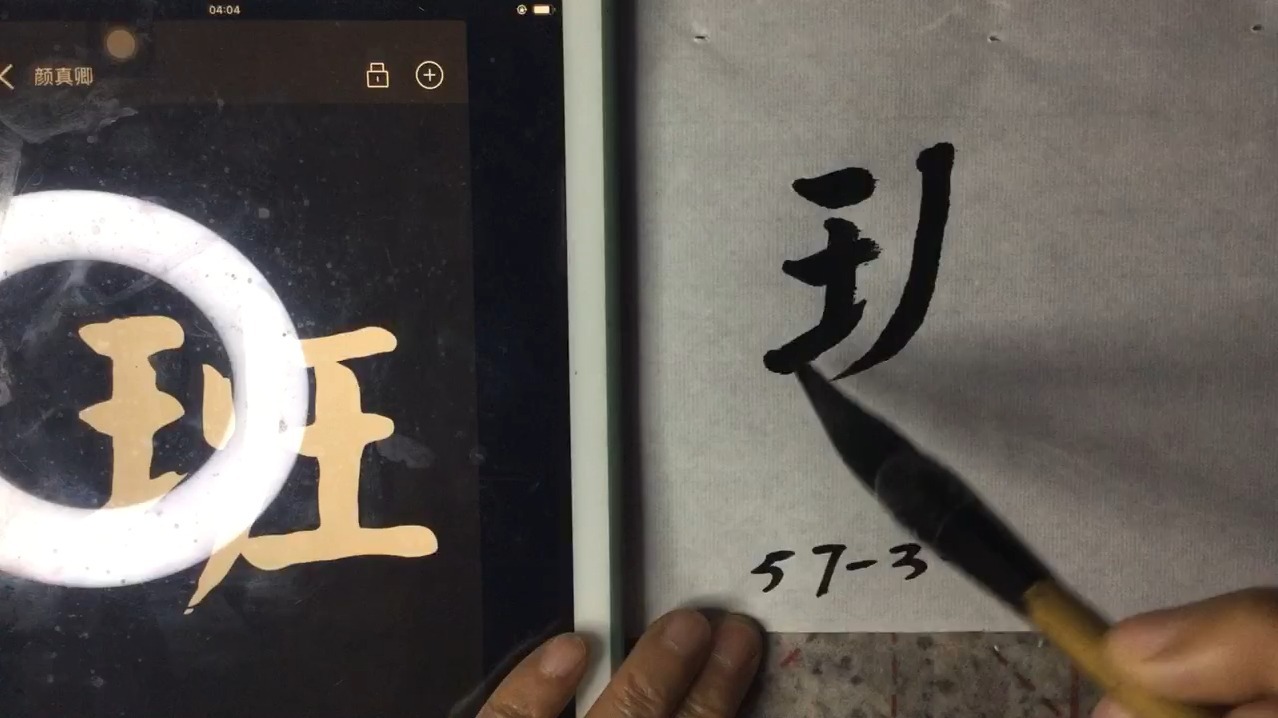 04:04
颜真卿
班
57-3